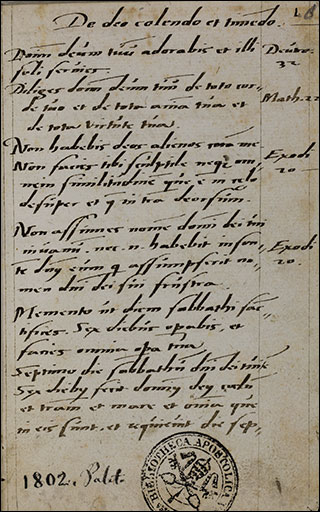 De deo colendo et timendo.
16
Dominū deum tuū adorabis et illi
soli servies.
Deutro.
32
Diliges dom̄ deum tuū de toto cor-
de tuo et de tota aīa tua et
de tota virtute tua.
Math. 22
Non habebis deos alienos corā me
Non facies tibi sculptile neqȝ om-
nem similitudinē que ē in celo
desuper et q̄ in tra deorsum.
Exodi
20
Non assumes nome domī dei tui
in vanū nec n. habebit inson-
te dn̄s eum q assumpserit no-
men dnī dei sui frustra.
Exodi
20.
Memento ut diem sabbathi sāc-
tifices. Sex diebus opabis, et
facies omnia opa tua
Septimo die sabbathū dnī dei tui ē
Sex diebȝ fecit dominȝ deȝ celū
et terram et mare et omīa que
in eis sunt, et requievit die sep-
1802. Palat.
BIBLIOTHECA APOSTOLICA